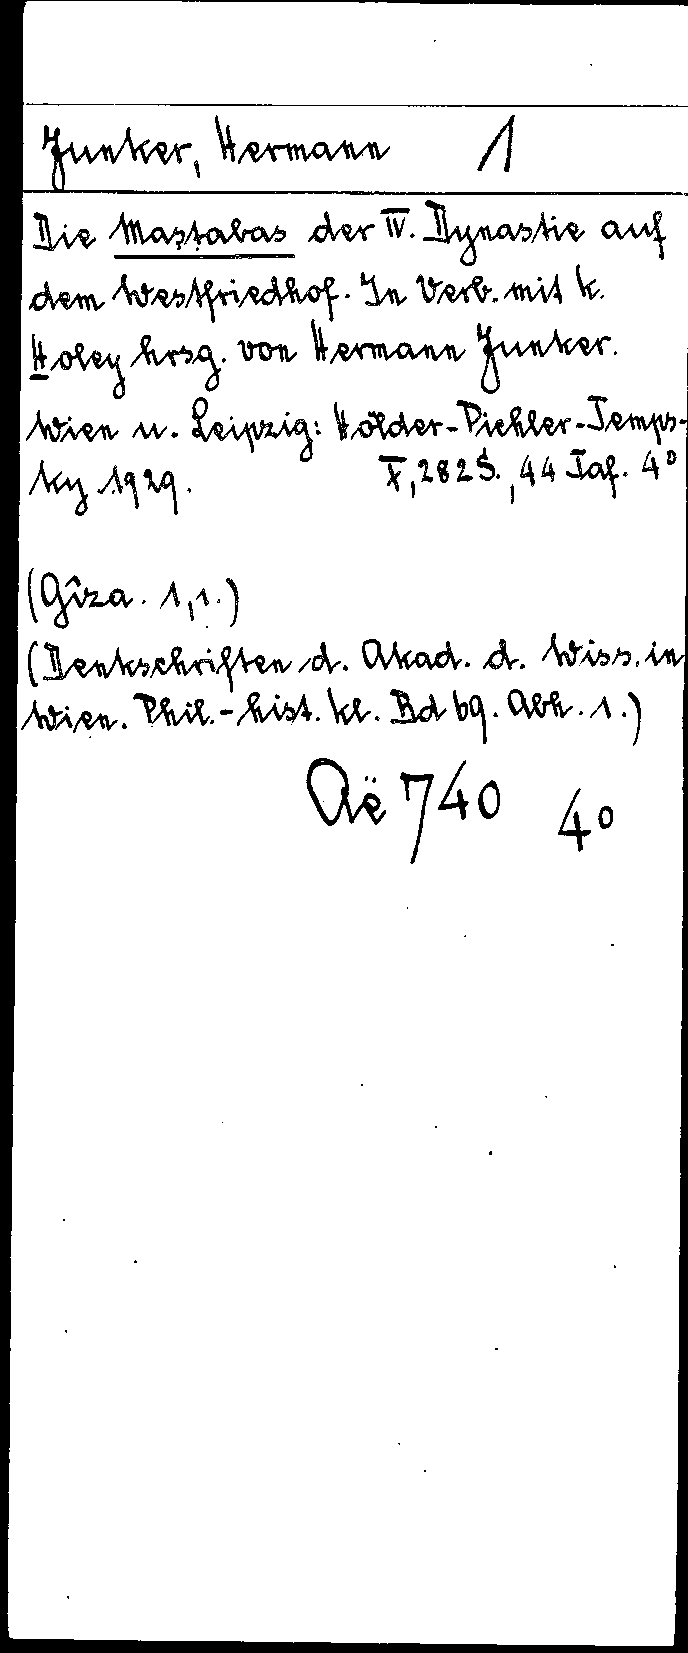 Junker, Hermann 1
Die Mastabas der IV. Dynastie auf
dem Westfriedhof. In Verb. mit K.
Holey hrsg. von Hermann Junker.
Wien u. Leipzig: Hölder-Pichler-Temps-
ky 1929. X, 282 S., 44 Taf. 4°
(Gîza. 1,1.)
(Denkschriften d. Akad. d. Wiss. in
Wien. Phil.-hist. Kl. Bd 69. Abh. 1.)
Aë 740 4°